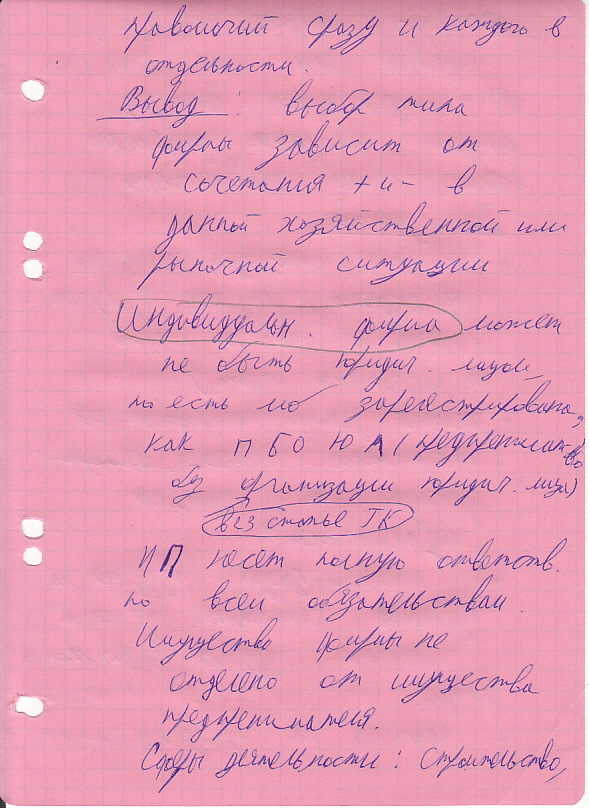 правомочий сразу и каждого в
отдельности.
Вывод: выбор типа
фирмы зависит от
сочетания + и - в
данной хозяйственной или
рыночной ситуации
Индивидуальн. фирма может
не быть юридич. лицом,
то есть мб зарегестрирована,
как ПБОЮЛ (предпринимат-во
без организации юридич. лица)
в 23 статье ГК
ИП несет полную ответств.
по всем обязательствам.
Имущество фирмы не
отделено от имущества
предпринимателя.
Сферы деятельности: Строительство,